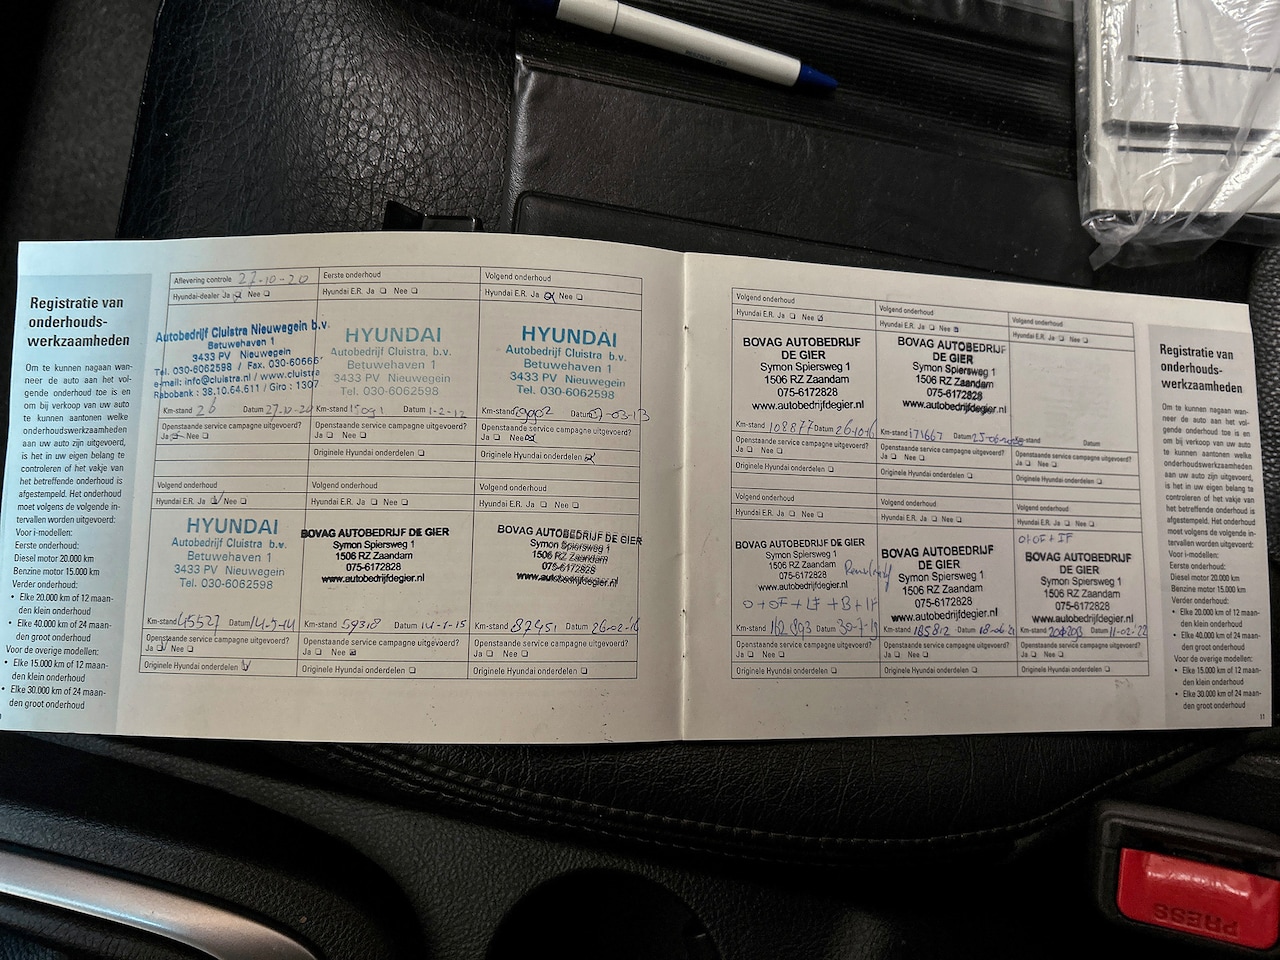 Registratie van
onderhouds-
werkzaamheden
Om te kunnen nagaan wan-
neer de auto aan het vol-
gende onderhoud toe is en
om bij verkoop van uw auto
te kunnen aantonen welke
onderhoudswerkzaamheden
aan uw auto zijn uitgevoerd,
is het in uw eigen belang te
controleren of het vakje van
het betreffende onderhoud is
afgestempeld. Het onderhoud
moet volgens de volgende in-
tervallen worden uitgevoerd:
Voor i-modellen:
Eerste onderhoud:
Diesel motor 20.000 km
Benzine motor 15.000 km
Verder onderhoud:
• Elke 20.000 km of 12 maan-
den klein onderhoud
• Elke 40.000 km of 24 maan-
den groot onderhoud
Voor de overige modellen:
• Elke 15.000 km of 12 maan-
den klein onderhoud
• Elke 30.000 km of 24 maan-
den groot onderhoud
Aflevering controle 27-10-20
Hyundai-dealer Ja Nee
Autobedrijf Cluistra Nieuwegein b.v.
Betuwehaven 1
3433 PV Nieuwegein
Tel. 030-6062598 / Fax. 030-60666
e-mail: info@cluistra.nl / www.cluistra
Rabobank : 38.10.64.611 / Giro : 1307
Km-stand 26 Datum 27-10-20
Openstaande service campagne uitgevoerd?
Ja Nee
Eerste onderhoud
Hyundai E.R. Ja Nee
HYUNDAI
Autobedrijf Cluistra, b.v.
Betuwehaven 1
3433 PV Nieuwegein
Tel. 030-6062598
Km-stand 15091 Datum 1-2-12
Openstaande service campagne uitgevoerd?
Ja Nee
Originele Hyundai onderdelen
Volgend onderhoud
Hyundai E.R. Ja Nee
HYUNDAI
Autobedrijf Cluistra, b.v.
Betuwehaven 1
3433 PV Nieuwegein
Tel. 030-6062598
Km-stand Datum -03-13
Openstaande service campagne uitgevoerd?
Ja Nee
Originele Hyundai onderdelen
Volgend onderhoud
Hyundai E.R. Ja Nee
HYUNDAI
Autobedrijf Cluistra b.v.
Betuwehaven 1
3433 PV Nieuwegein
Tel. 030-6062598
Km-stand 45527 Datum 14-5-14
Openstaande service campagne uitgevoerd?
Ja Nee
Originele Hyundai onderdelen
Volgend onderhoud
Hyundai E.R. Ja Nee
BOVAG AUTOBEDRIJF DE GIER
Symon Spiersweg 1
1506 RZ Zaandam
075-6172828
www.autobedrijfdegier.nl
Km-stand 59318 Datum 14-1-15
Openstaande service campagne uitgevoerd?
Ja Nee
Originele Hyundai onderdelen
Volgend onderhoud
Hyundai E.R. Ja Nee
BOVAG AUTOBEDRIJF DE GIER
Symon Spiersweg 1
1506 RZ Zaandam
075-6172828
www.autobedrijfdegier.nl
Km-stand 87451 Datum 26-02-16
Openstaande service campagne uitgevoerd?
Ja Nee
Originele Hyundai onderdelen
Volgend onderhoud
Hyundai E.R. Ja Nee
BOVAG AUTOBEDRIJF
DE GIER
Symon Spiersweg 1
1506 RZ Zaandam
075-6172828
www.autobedrijfdegier.nl
Km-stand 108877 Datum 26-10-16
Openstaande service campagne uitgevoerd?
Ja Nee
Originele Hyundai onderdelen
Volgend onderhoud
Hyundai E.R. Ja Nee
BOVAG AUTOBEDRIJF
DE GIER
Symon Spiersweg 1
1506 RZ Zaandam
075-6172828
www.autobedrijfdegier.nl
Km-stand 171667 Datum 25-06-2020
Openstaande service campagne uitgevoerd?
Ja Nee
Originele Hyundai onderdelen
Volgend onderhoud
Hyundai E.R. Ja Nee
Datum
Openstaande service campagne uitgevoerd?
Ja Nee
Originele Hyundai onderdelen
Volgend onderhoud
Hyundai E.R. Ja Nee
BOVAG AUTOBEDRIJF
DE GIER
Symon Spiersweg 1
1506 RZ Zaandam
075-6172828
www.autobedrijfdegier.nl
O + OF + LF + B + IF
Km-stand 162 893 Datum 30-7-19
Openstaande service campagne uitgevoerd?
Ja Nee
Originele Hyundai onderdelen
Volgend onderhoud
Hyundai E.R. Ja Nee
BOVAG AUTOBEDRIJF
DE GIER
Symon Spiersweg 1
1506 RZ Zaandam
075-6172828
www.autobedrijfdegier.nl
Km-stand 185812 Datum 18-06-21
Openstaande service campagne uitgevoerd?
Ja Nee
Originele Hyundai onderdelen
Volgend onderhoud
Hyundai E.R. Ja Nee
O+OF + IF
BOVAG AUTOBEDRIJF
DE GIER
Symon Spiersweg 1
1506 RZ Zaandam
075-6172828
www.autobedrijfdegier.nl
Km-stand Datum 11-02-'22
Openstaande service campagne uitgevoerd?
Ja Nee
Originele Hyundai onderdelen
Registratie van
onderhouds-
werkzaamheden
Om te kunnen nagaan wan-
neer de auto aan het vol-
gende onderhoud toe is en
om bij verkoop van uw auto
te kunnen aantonen welke
onderhoudswerkzaamheden
aan uw auto zijn uitgevoerd,
is het in uw eigen belang te
controleren of het vakje van
het betreffende onderhoud is
afgestempeld. Het onderhoud
moet volgens de volgende in-
tervallen worden uitgevoerd:
Voor i-modellen:
Eerste onderhoud:
Diesel motor 20.000 km
Benzine motor 15.000 km
Verder onderhoud:
• Elke 20.000 km of 12 maan-
den klein onderhoud
• Elke 40.000 km of 24 maan-
den groot onderhoud
Voor de overige modellen:
• Elke 15.000 km of 12 maan-
den klein onderhoud
• Elke 30.000 km of 24 maan-
den groot onderhoud
11
PRESS